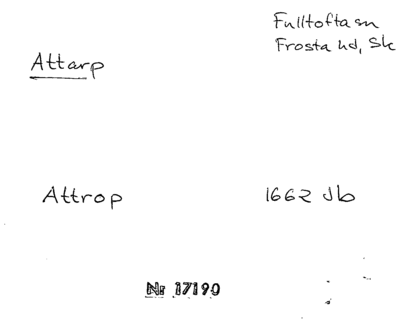 Fulltofta sn
Frosta hd, Sk
Attarp
Attrop 1662 Jb
Nr 17190